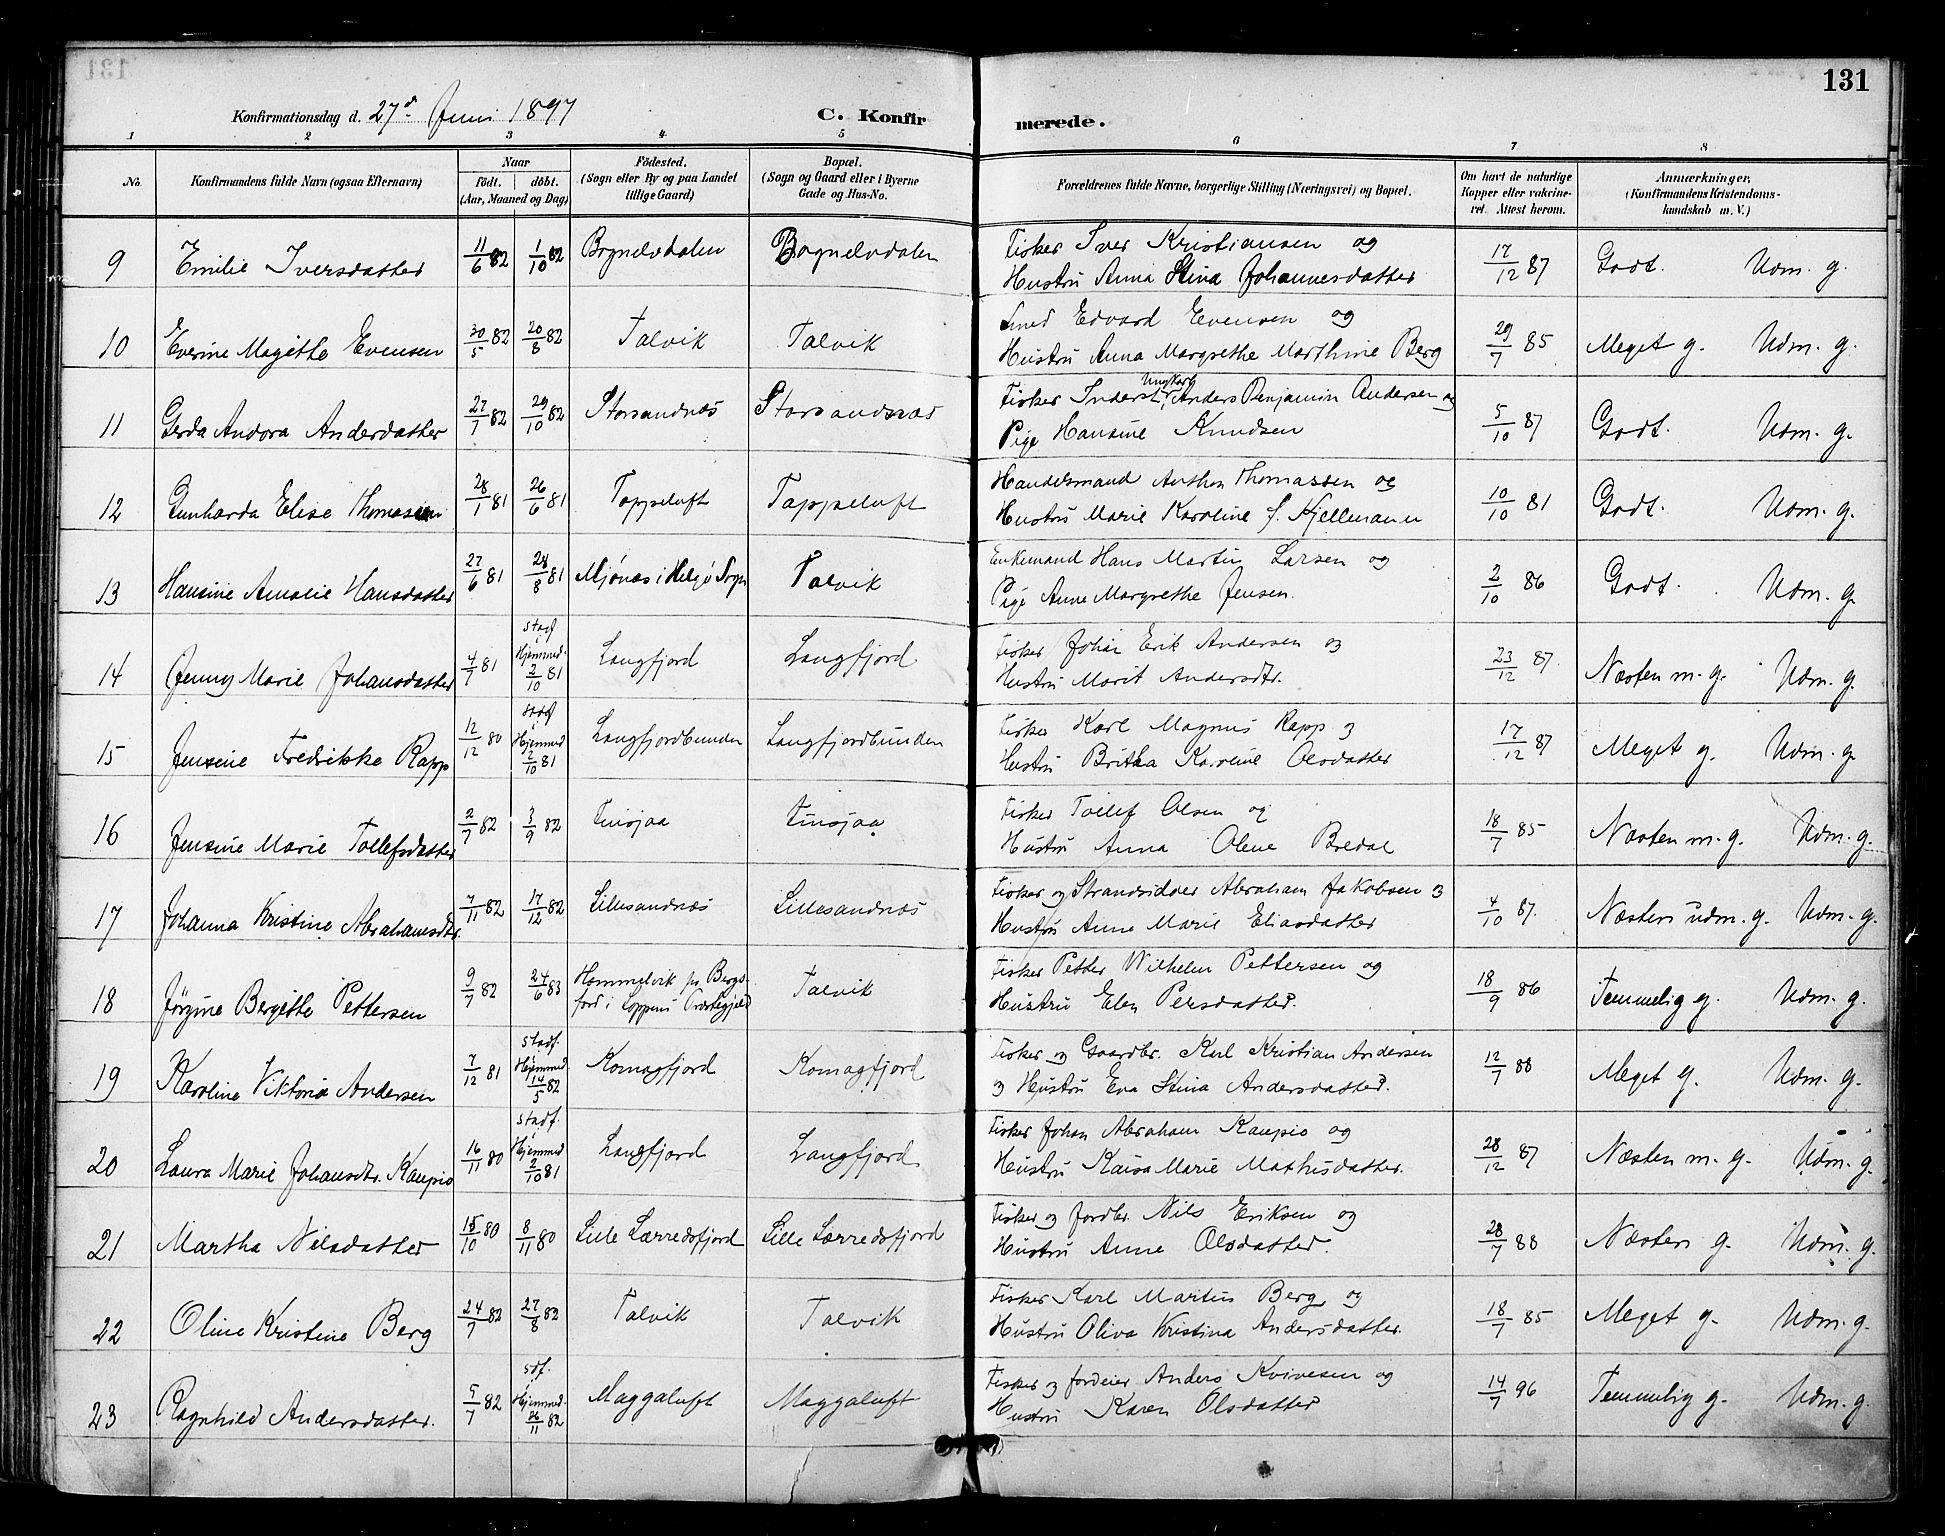 131
Konfirmationsdag d. 27de Juni 1897 C. Konfirmerede.
1 2 3 4 5 6 7 8
No. Konfirmandens fulde Navn (ogsaa Efternavn) Naar födt. döbt. (Aar, Maaned og Dag) Födested. (Sogn eller By og paa Landet tillige Gaard) Bopæl. (Sogn og Gaard eller i Byerne Gade og Hus-No. Forældrenes fulde Navne, borgerlige Stilling (Næringsvei) og Bopæl. Om havt de naturlige Kopper eller vakcineret. Attest herom. Anmærkninger, (Konfirmandens Kristendomskundskab m. V.)
9 Emilie Iversdatter 11/6 82 1/10 82 Bognelvdalen Bognelvdalen Fisker Iver Kristiansen og
Hustru Anna Stina Johannesdatter 17/12 87 Godt. Udm. g.
10 Everine Magitte Evensen 30/5 82 20/8 82 Talvik Talvik Smed Edvard Evensen og
Hustru Anna Margrethe Marthine Berg 29/7 85 Meget g. Udm. g.
11 Gerda Andora Anderdatter 27/7 82 29/10 82 Storsandnæs Storsandnæs Fisker Inderst, Ungkarl Anders Benjamin Andersen og
Pige Hansine Knudsen 5/10 87 Godt. Udm. g.
12 Gunharda Elise Thomassen 28/1 81 26/6 81 Tappeluft Tappeluft Handelsmand Anthon Thomassen og
Hustru Marie Karoline f. Kjellmann 10/10 81 Godt. Udm. g.
13 Hansine Amalie Hansdatter 27/6 81 28/8 81 Mjónæs i Helgö Sogn Talvik Enkemand Hans Martin Larsen og
Pige Anne Margrethe Jensen. 2/10 86 Godt. Udm. g.
14 Jenny Marie Johansdatter 4/7 81 stadf. i Hjemmed. 2/10 81 Langfjord Langfjord Fisker Johan Erik Andersen og
Hustru Marit Andersdtr. 23/12 87. Næsten m. g. Udm. g.
15 Jensine Fredrikke Rapp 12/12 80 stadf. i Hjemmed 2/10 81 Langfjordbunden Langfjordbunden Fisker Karl Magnus Rapp og
Hustru Britha Karoline Olsdatter 17/12 87 Meget g. Udm. g.
16 Jensine Marie Tollefsdatter 2/7 82 3/9 82 Tinsjaa Tinsjaa Fisker Tollef Olsen og
Hustru Anna Olene Bredal 18/7 85 Næsten m. g. Udm. g.
17 Johanna Kristine Abrahamsdtr. 7/11 82 17/12 82 Lillesandnæs Lillesandnæs Fisker og Strandsidder Abraham Jakobsen og
Hustru Anne Marie Eliasdatter 4/10 87. Næsten udm. g. Udm. g.
18 Jörgine Bergitte Pettersen 9/7 82 24/6 83 Hammelvik pr. Bergsfjord i Loppens Præstegjeld Talvik Fisker Petter Wilhelm Pettersen og
Hustru Elen Persdatter. 18/9 86 Temmelig g. Udm. g.
19 Karoline Viktoria Andersen 7/12 81 stadf. i Hjemmed. 14/5 82 Komagfjord Komagfjord Fisker og Gaardbr. Karl Kristian Andersen
og Hustru Eva Stina Andersdatter. 12/7 88 Meget g. Udm. g.
20 Laura Marie Johansdtr. Kaupio 16/11 80 stadf. i Hjemmed 2/10 81 Langfjord Langfjord Fisker Johan Abraham Kaupio og
Hustru Kaisa Marie Mathisdatter. 28/12 87 Næsten m. g. Udm. g.
21 Martha Nilsdatter 15/10 80 8/11 80 Lille Lærredsfjord Lille Lærredsfjord Fisker og Jordbr. Nils Eriksen og
Hustru Anne Olsdatter. 28/7 88 Næsten g. Udm. g.
22 Oline Kristine Berg 24/7 82 27/8 82 Talvik Talvik Fisker Karl Martius Berg og
Hustru Oliva Kristina Andersdatter. 18/7 85 Meget g. Udm. g.
23 Ragnhild Andersdatter. 5/7 82 stdf. i Hjemmed. 26/11 82 Maggaluft Maggaluft Fisker og Jordeier Anders Kvivesen og
Hustru Karen Olsdatter 14/7 96 Temmelig g. Udm. g.